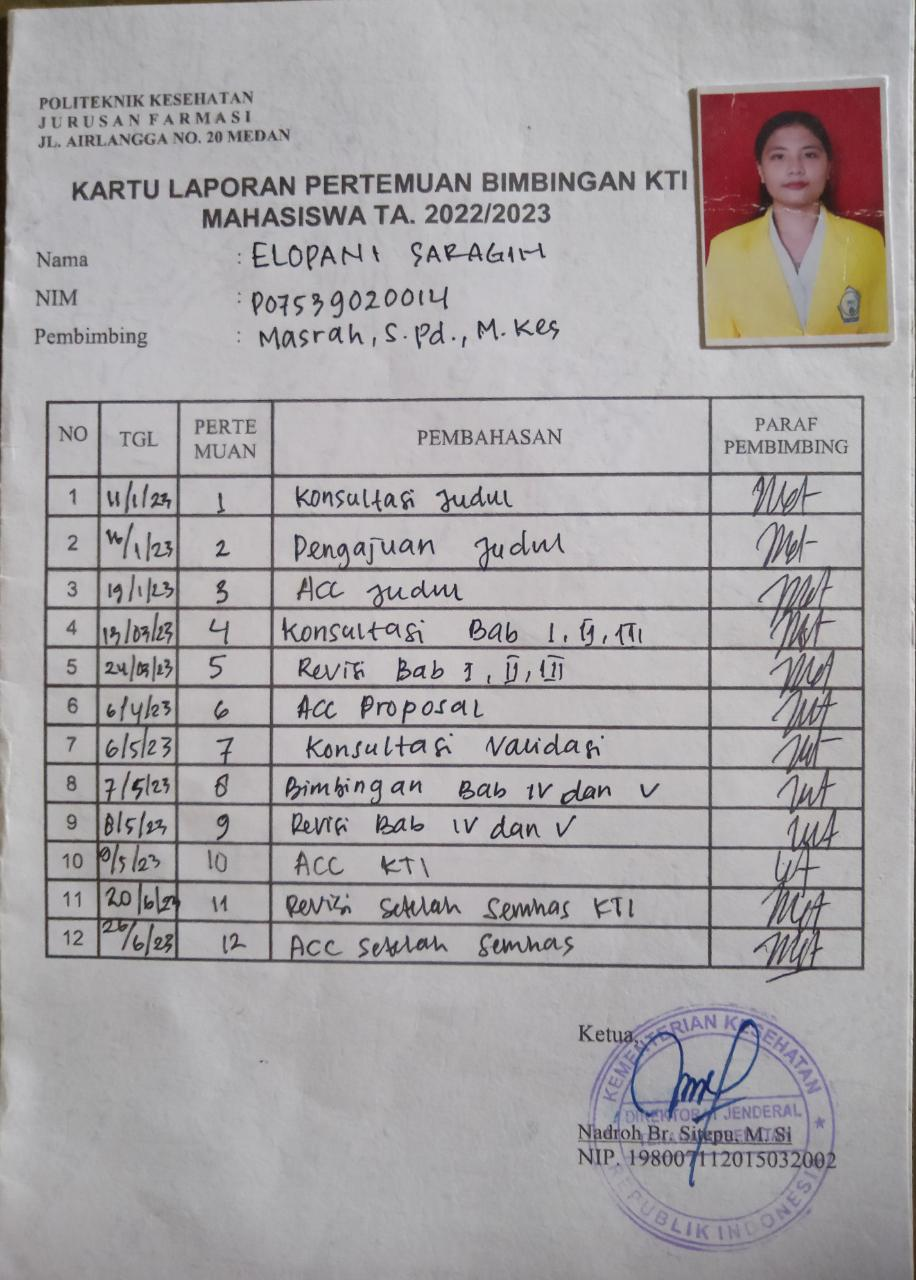 POLITEKNIK KESEHATAN
JURUSAN FARMASI
JL. AIRLANGGA NO. 20 MEDAN
KARTU LAPORAN PERTEMUAN BIMBINGAN KTI
MAHASISWA TA. 2022/2023
Nama : ELOPANI SARAGIH
NIM : P07539020014
Pembimbing : Masrah, S.Pd., M.Kes
NO TGL PERTEMUAN PEMBAHASAN PARAF PEMBIMBING
1 11/1/23 1 Konsultasi Judul
2 16/1/23 2 Pengajuan Judul
3 19/1/23 3 ACC Judul
4 13/03/23 4 Konsultasi Bab I, II, III
5 24/03/23 5 Revisi Bab I, II, III
6 6/4/23 6 Acc Proposal
7 6/5/23 7 Konsultasi Validasi
8 7/5/23 8 Bimbingan Bab IV dan V
9 8/5/23 9 Revisi Bab IV dan V
10 9/5/23 10 ACC KTI
11 20/6/23 11 Revisi Setelah Semhas KTI
12 26/6/23 12 ACC Setelah Semhas
Ketua,
KEMENTERIAN KESEHATAN
DIREKTORAT JENDERAL
Nadroh Br. Sitepu, M. Si
NIP. 198007112015032002
REPUBLIK INDONESIA